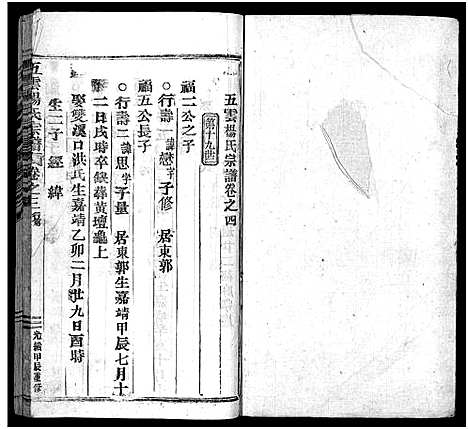 五雲楊氏宗譜卷之四
第十九世
福二公之子
○行壽一諱懋字子修 居東郭
福五公長子
○行壽二諱思字子量 居東郭生嘉靖甲辰七月十
二日戌時卒 葬黃壇龜上
娶雙溪口洪氏生嘉靖乙卯二月廿九日酉時
生二子 經 緯
五雲楊氏宗譜 卷之三
光緒甲辰重修